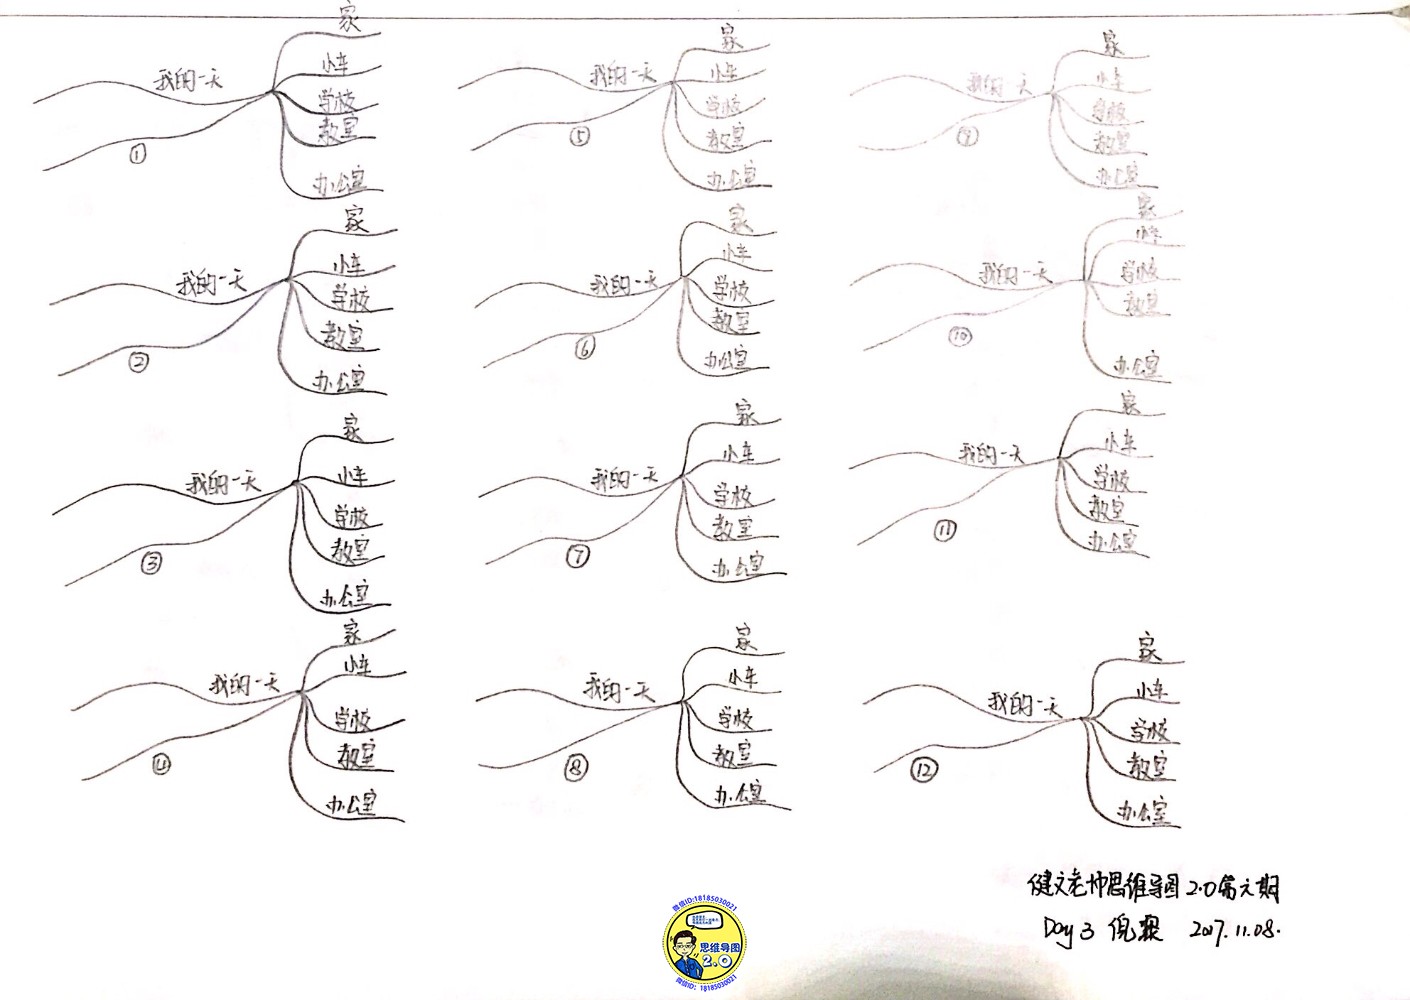 家
小车
我的一天
学校
教室
①
办公室
家
小车
我的一天
学校
教室
②
办公室
家
小车
我的一天
学校
教室
③
办公室
家
小车
我的一天
学校
教室
④
办公室
家
小车
我的一天
学校
教室
⑤
办公室
家
小车
我的一天
学校
教室
⑥
办公室
家
小车
我的一天
学校
教室
⑦
办公室
家
小车
我的一天
学校
教室
⑧
办公室
家
小车
我的一天
学校
教室
⑨
办公室
家
小车
我的一天
学校
教室
⑩
办公室
家
小车
我的一天
学校
教室
⑪
办公室
家
小车
我的一天
学校
教室
⑫
办公室
健文老师思维导图2.0第六期
Day 3 倪 2017.11.08.
微信ID:18185030021
思维导图
2.0
微信ID: 18185030021